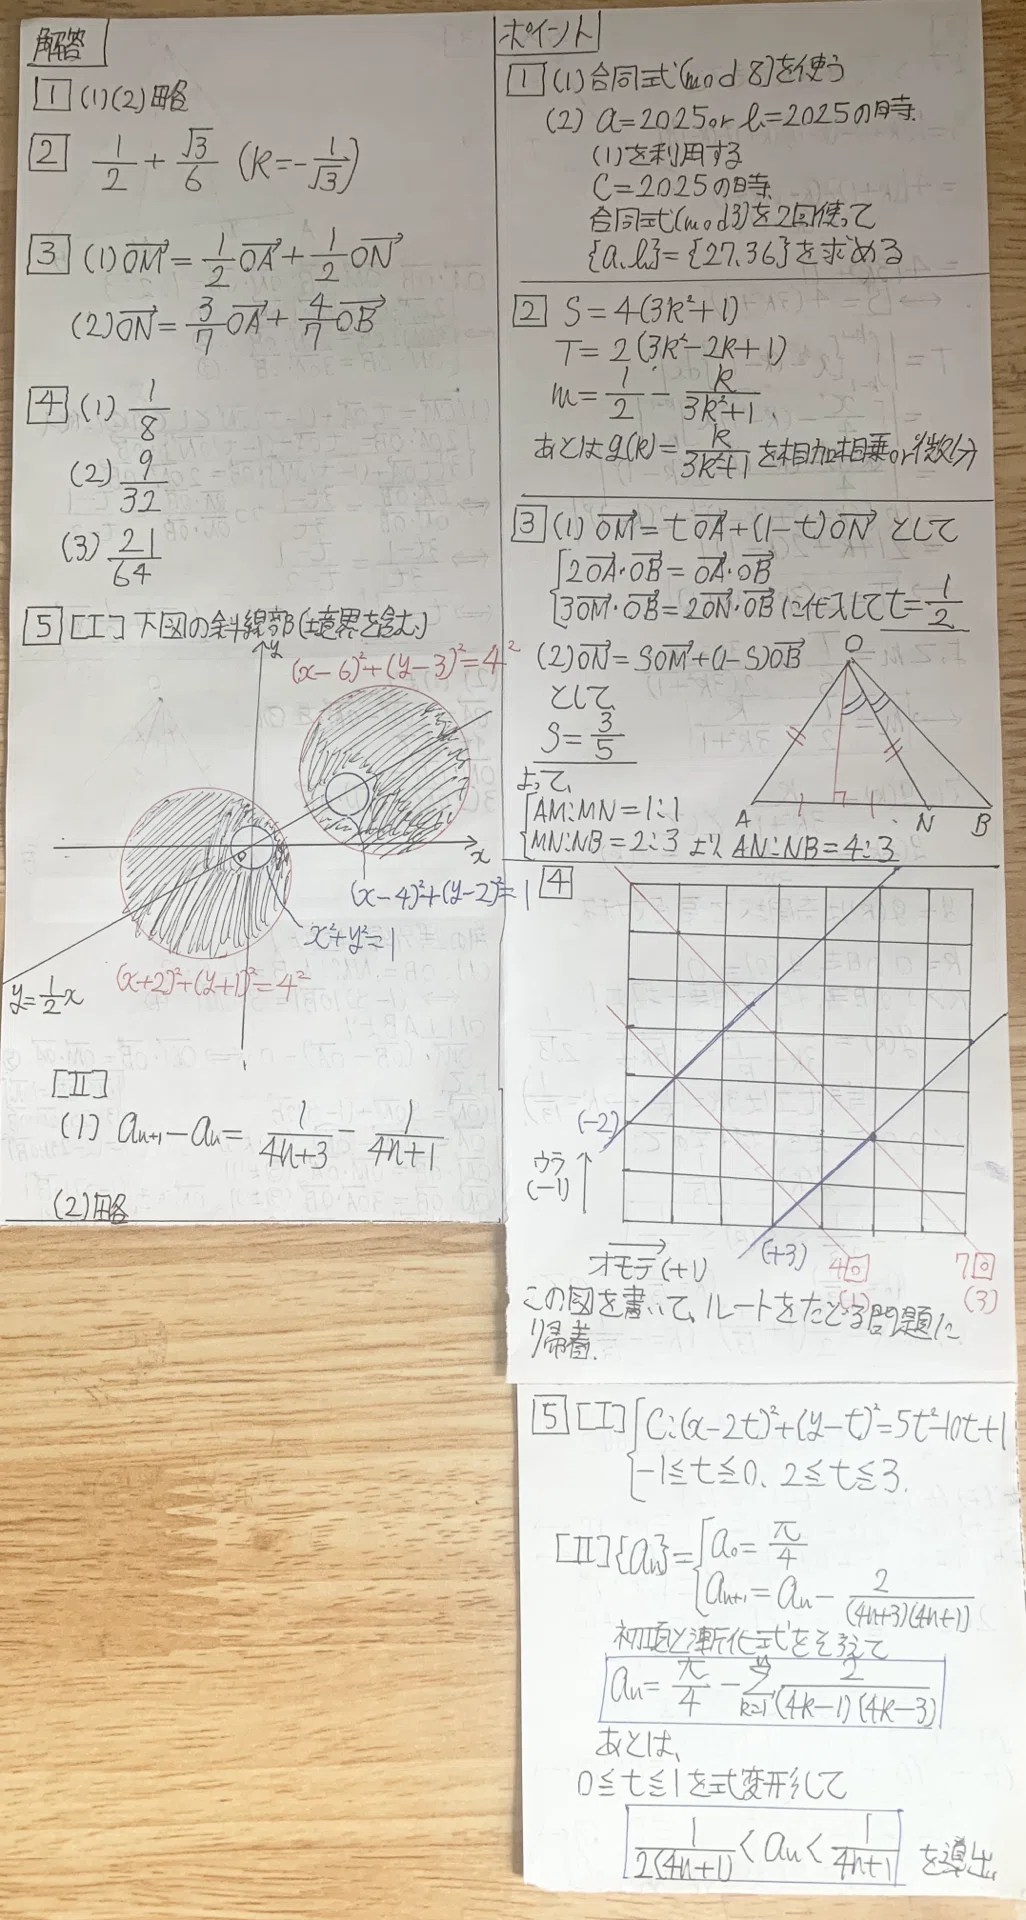 解答
1 (1)(2)略
2 1/2 + √3/6 (k=-1/√3)
3 (1) OM→ = 1/2 OA→ + 1/2 ON→
(2) ON→ = 3/7 OA→ + 4/7 OB→
4 (1) 1/8
(2) 9/32
(3) 21/64
5 [I] 下図の斜線部(境界を含む)
y
(x-6)²+(y-3)²=4²
0
x
(x-4)²+(y-2)²=1
x²+y²=1
(x+2)²+(y+1)²=4²
y=1/2x
[II]
(1) an+1-an = 1/(4n+3) - 1/(4n+1)
(2)略
ポイント
1 (1)合同式(mod 8)を使う
(2) a=2025 or b=2025の時
(1)を利用する
C=2025の時
合同式(mod3)を2回使って
{a,b}={27,36}を求める
2 S=4(3k²+1)
T=2(3k²-2k+1)
m=1/2 - k/(3k²+1)
あとはg(k)=k/(3k²+1)を相加相乗or微分
3 (1) OM→=tOA→+(1-t)ON→ として
2OA→・OB→=OA→・OB→
3OM→・OB→=2ON→・OB→に代入してt=1/2
(2) ON→=SOM→+(1-S)OB→
として
S=3/5
よって、
AM:MN=1:1
MN:NB=2:3 より AN:NB=4:3
O
A
N
B
4
(-2)
ウラ
(-1)
オモテ(+1)
(+3)
4回
(1)
7回
(3)
この図を書いて、ルートをたどる問題に
帰着.
5 [I] C:(x-2t)²+(y-t)²=5t²-10t+1
-1≦t≦0、2≦t≦3.
[II]{an}= a0=π/4
an+1=an - 2/((4n+3)(4n+1))
初項と漸化式をそろえて
an=π/4 - Σ k=1 n 2/((4k-1)(4k-3))
あとは、
0≦t≦1を式変形して
1/(2(4n+1)) < an < 1/(4n+1) を導出